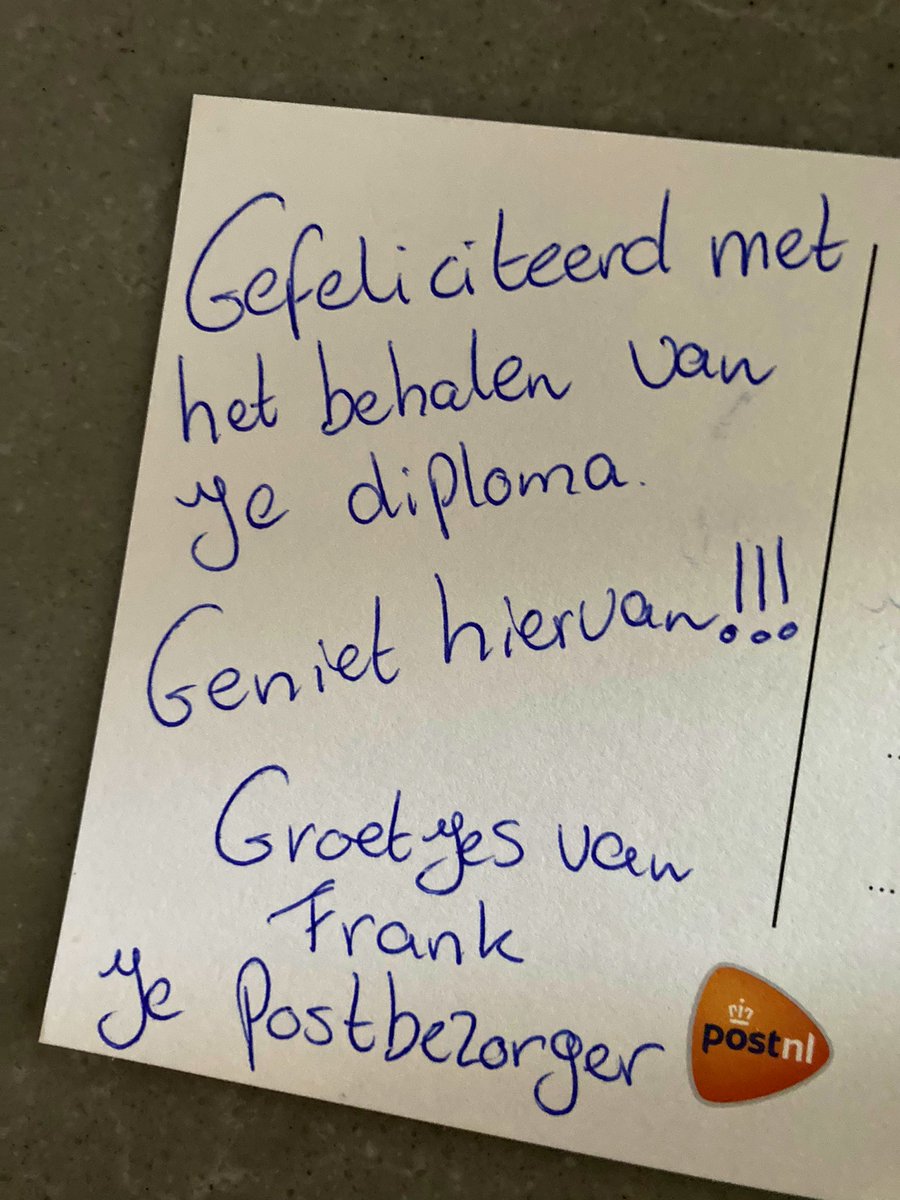 Gefeliciteerd met
het behalen van
je diploma.
Geniet hiervan!!!
Groetjes van
Frank
je Postbezorger
postnl